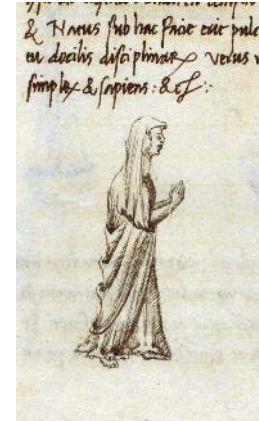 & Natus sub hac facie erit pulc
eu docilis disciplinar verus
simplex & sapiens : &c